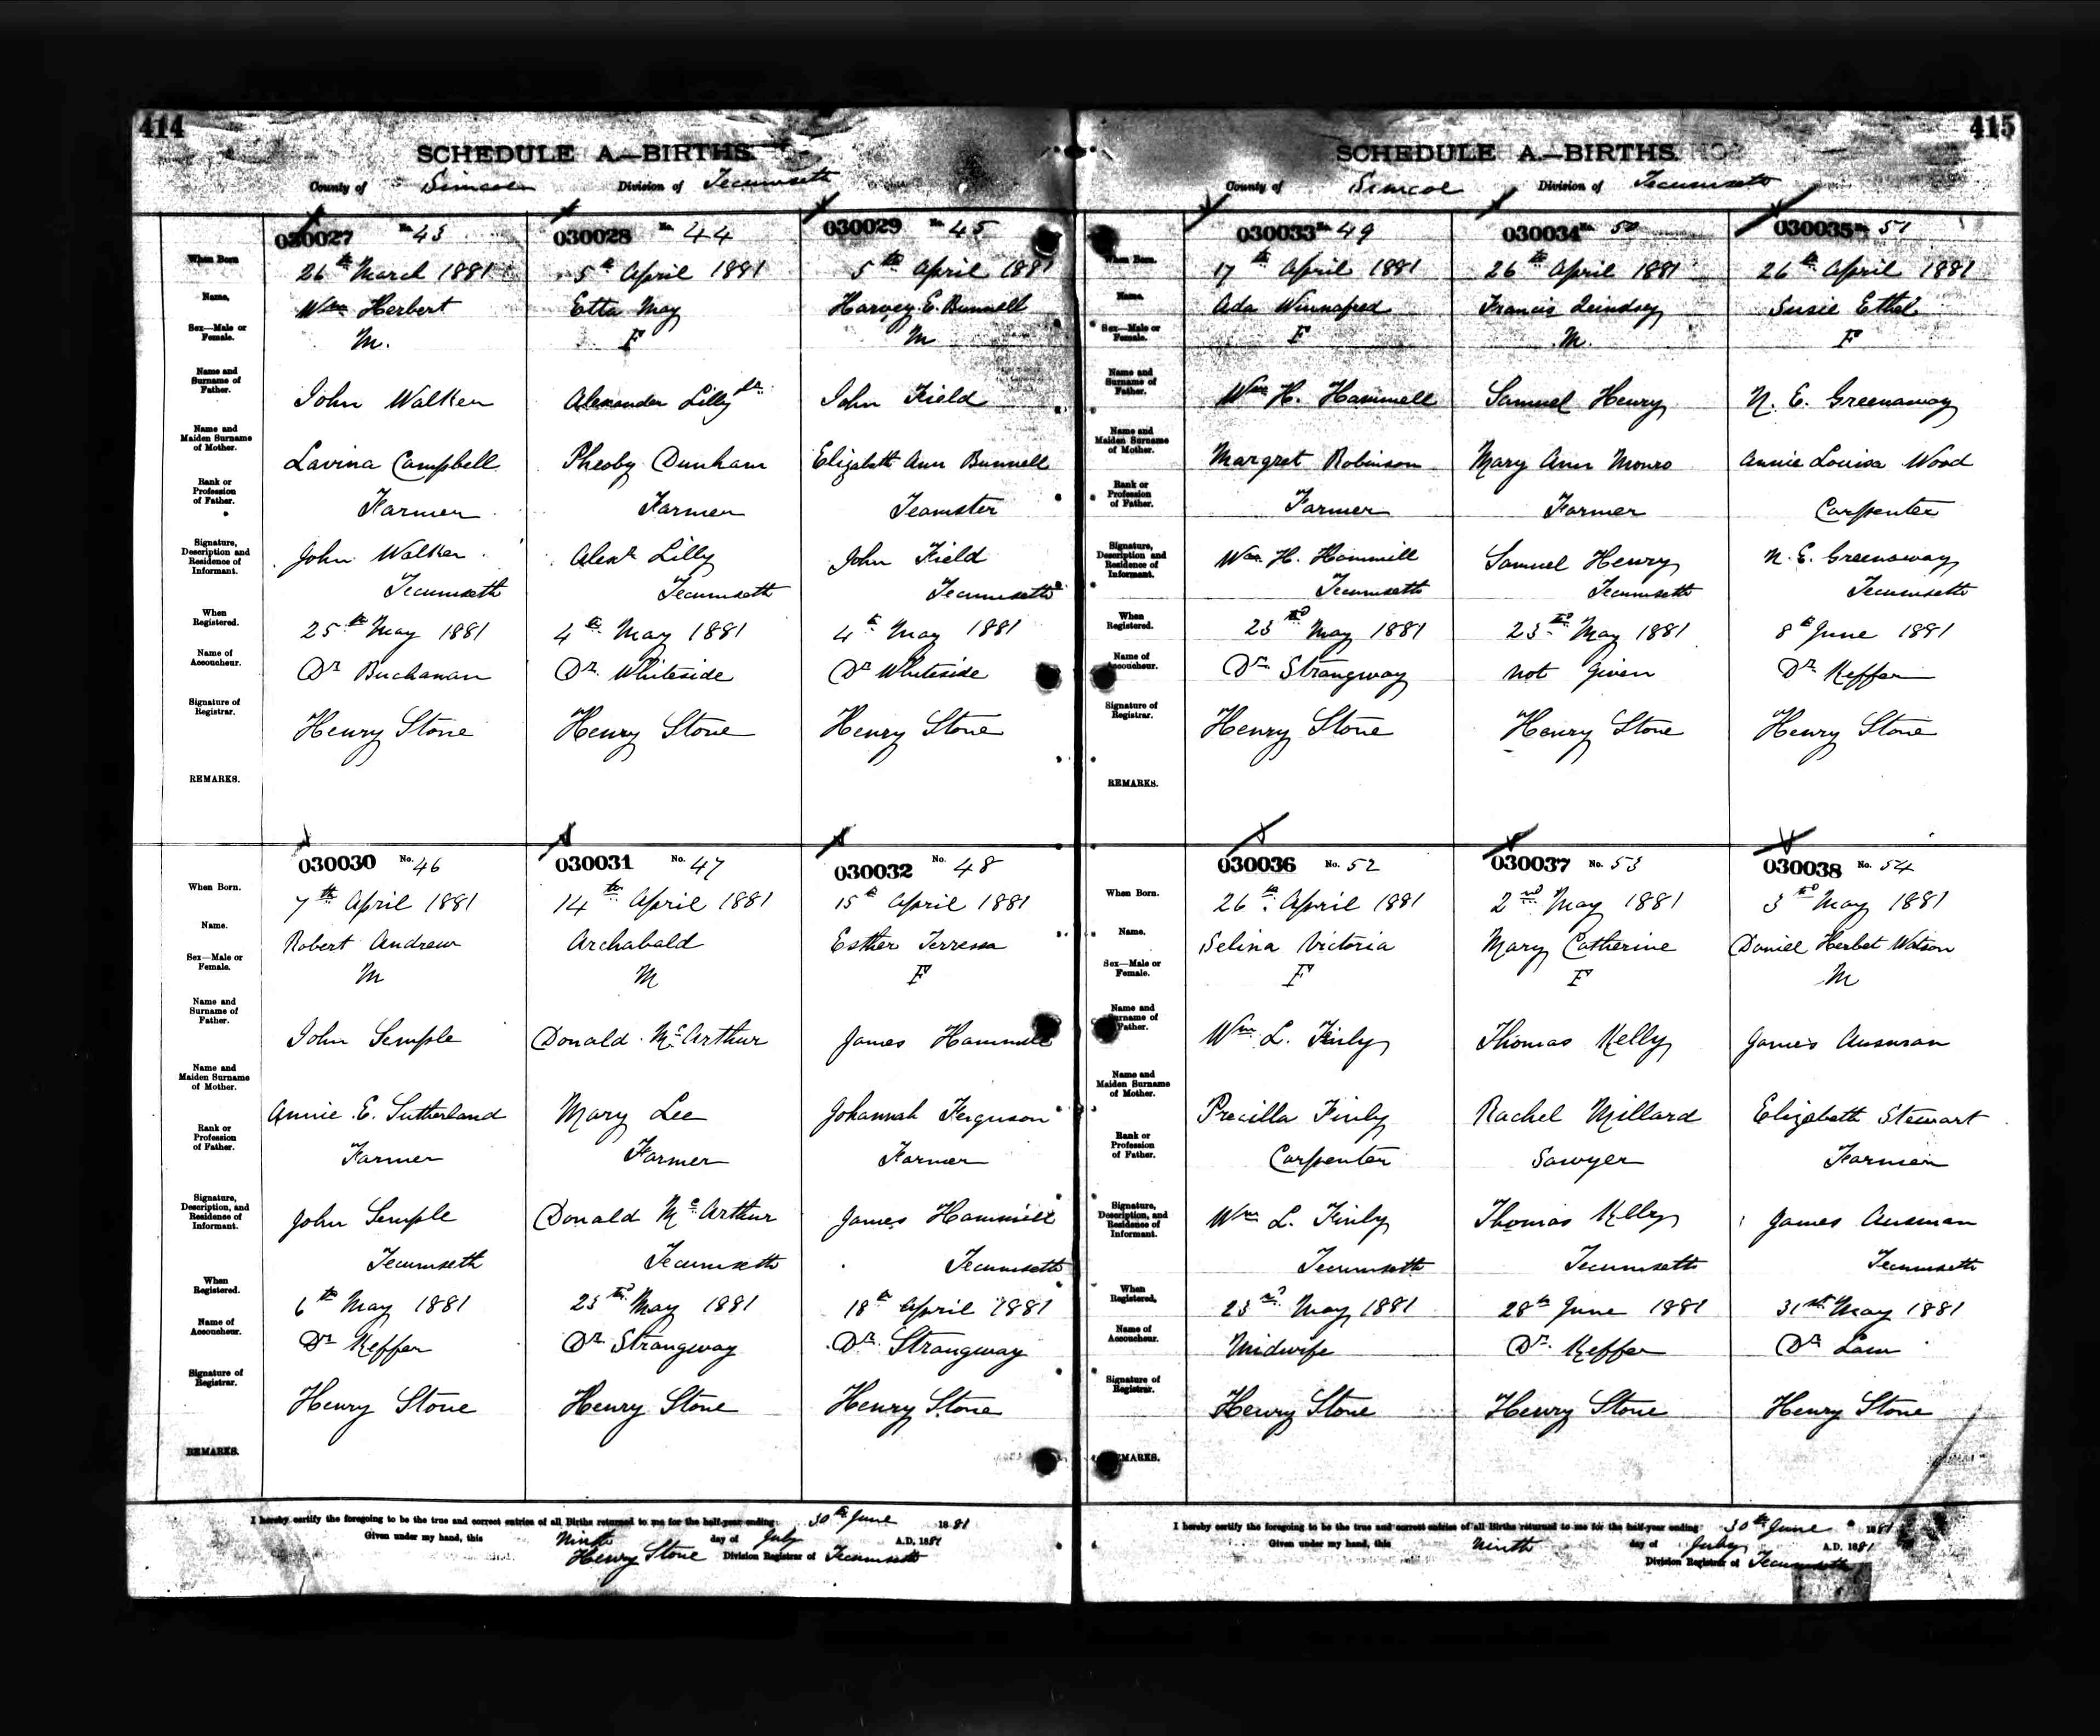 414
SCHEDULE A.—BIRTHS.
County of Simcoe Division of Tecumseth
030027 No. 43 030028 No. 44 030029 No. 45
When Born 26th March 1881 5th April 1881 5th April 1881
Name. Wm Herbert Etta May Harvey E. Bunnell
Sex—Male or Female. M. F M
Name and Surname of Father. John Walker Alexander Lilly Jr. John Field
Name and Maiden Surname of Mother. Lavina Campbell Pheoby Dunham Elizabeth Ann Bunnell
Rank or Profession of Father. Farmer Farmer Teamster
Signature, Description and Residence of Informant. John Walker Alexr Lilly John Field
Tecumseth Tecumseth Tecumseth
When Registered. 25th May 1881 4th May 1881 4th May 1881
Name of Accoucheur. Dr Buchanan Dr. Whiteside Dr Whiteside
Signature of Registrar. Henry Stone Henry Stone Henry Stone
REMARKS.
030030 No. 46 030031 No. 47 030032 No. 48
When Born. 7th April 1881 14th April 1881 15th April 1881
Name. Robert Andrew Archabald Esther Terressa
Sex—Male or Female. M M F
Name and Surname of Father. John Semple Donald McArthur James Hammill
Name and Maiden Surname of Mother. Annie E. Sutherland Mary Lee Johannah Ferguson
Rank or Profession of Father. Farmer Farmer Farmer
Signature, Description, and Residence of Informant. John Semple Donald McArthur James Hammill
Tecumseth Tecumseth Tecumseth
When Registered. 6th May 1881 23rd May 1881 18th April 1881
Name of Accoucheur. Dr Keffer Dr Strangway Dr. Strangway
Signature of Registrar. Henry Stone Henry Stone Henry Stone
REMARKS.
I hereby certify the foregoing to be the true and correct entries of all Births returned to me for the half-year ending 30th June 1881
Given under my hand, this Ninth day of July A.D. 1881
Henry Stone Division Registrar of Tecumseth
415
SCHEDULE A.—BIRTHS.
County of Simcoe Division of Tecumseth
030033 No. 49 030034 No. 50 030035 No. 51
When Born. 17th April 1881 26th April 1881 26th April 1881
Name. Ada Winnafred Francis Lindsey Susie Ethel
Sex—Male or Female. F M. F
Name and Surname of Father. Wm H. Hammell Samuel Henry N. E. Greenaway
Name and Maiden Surname of Mother. Margret Robinson Mary Ann Monro Annie Louisa Wood
Rank or Profession of Father. Farmer Farmer Carpenter
Signature, Description and Residence of Informant. Wm H. Hammill Samuel Henry N. E. Greenaway
Tecumseth Tecumseth Tecumseth
When Registered. 23rd May 1881 23rd May 1881 8th June 1881
Name of Accoucheur. Dr. Strangway not Given Dr. Keffer
Signature of Registrar. Henry Stone Henry Stone Henry Stone
REMARKS.
030036 No. 52 030037 No. 53 030038 No. 54
When Born. 26th April 1881 2nd May 1881 3rd May 1881
Name. Selina Victoria Mary Catherine Daniel Herbet Watson
Sex—Male or Female. F F M
Name and Surname of Father. Wm L. Finly Thomas Kelly James Ausman
Name and Maiden Surname of Mother. Precilla Finly Rachel Millard Elizabeth Stewart
Rank or Profession of Father. Carpenter Sawyer Farmer
Signature, Description, and Residence of Informant. Wm L. Finly Thomas Kelly James Ausman
Tecumseth Tecumseth Tecumseth
When Registered. 23rd May 1881 28th June 1881 31st May 1881
Name of Accoucheur. Midwife Dr. Keffer Dr Law
Signature of Registrar. Henry Stone Henry Stone Henry Stone
REMARKS.
I hereby certify the foregoing to be the true and correct entries of all Births returned to me for the half-year ending 30th June 1881
Given under my hand, this Ninth day of July A.D. 1881
Division Registrar of Tecumseth